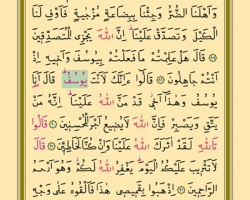 وَاَهْلَنَا الضُّرُّ وَجِئْنَا بِبِضَاعَةٍ مُزْجٰيةٍ فَاَوْفِ لَنَا
الْكَيْلَ وَتَصَدَّقْ عَلَيْنَا اِنَّ اللّٰهَ يَجْزِي الْمُتَصَدِّقِينَ
قَالَ هَلْ عَلِمْتُمْ مَا فَعَلْتُمْ بِيُوسُفَ وَاَخِيهِ اِذْ
اَنْتُمْ جَاهِلُونَ قَالُٓوا ءَاِنَّكَ لَاَنْتَ يُوسُفُ قَالَ اَنَا۬
يُوسُفُ وَهٰذَٓا اَخِي قَدْ مَنَّ اللّٰهُ عَلَيْنَا اِنَّهُ مَنْ
يَتَّقِ وَيَصْبِرْ فَاِنَّ اللّٰهَ لَا يُضِيعُ اَجْرَ الْمُحْسِنِينَ قَالُوا
تَاللّٰهِ لَقَدْ اٰثَرَكَ اللّٰهُ عَلَيْنَا وَاِنْ كُنَّا لَخَاطِـِٔينَ قَالَ
لَا تَثْرِيبَ عَلَيْكُمُ الْيَوْمَ يَغْفِرُ اللّٰهُ لَكُمْ وَهُوَ اَرْحَمُ
الرَّاحِمِينَ اِذْهَبُوا بِقَمِيصِي هٰذَا فَاَلْقُوهُ عَلٰى وَجْهِ